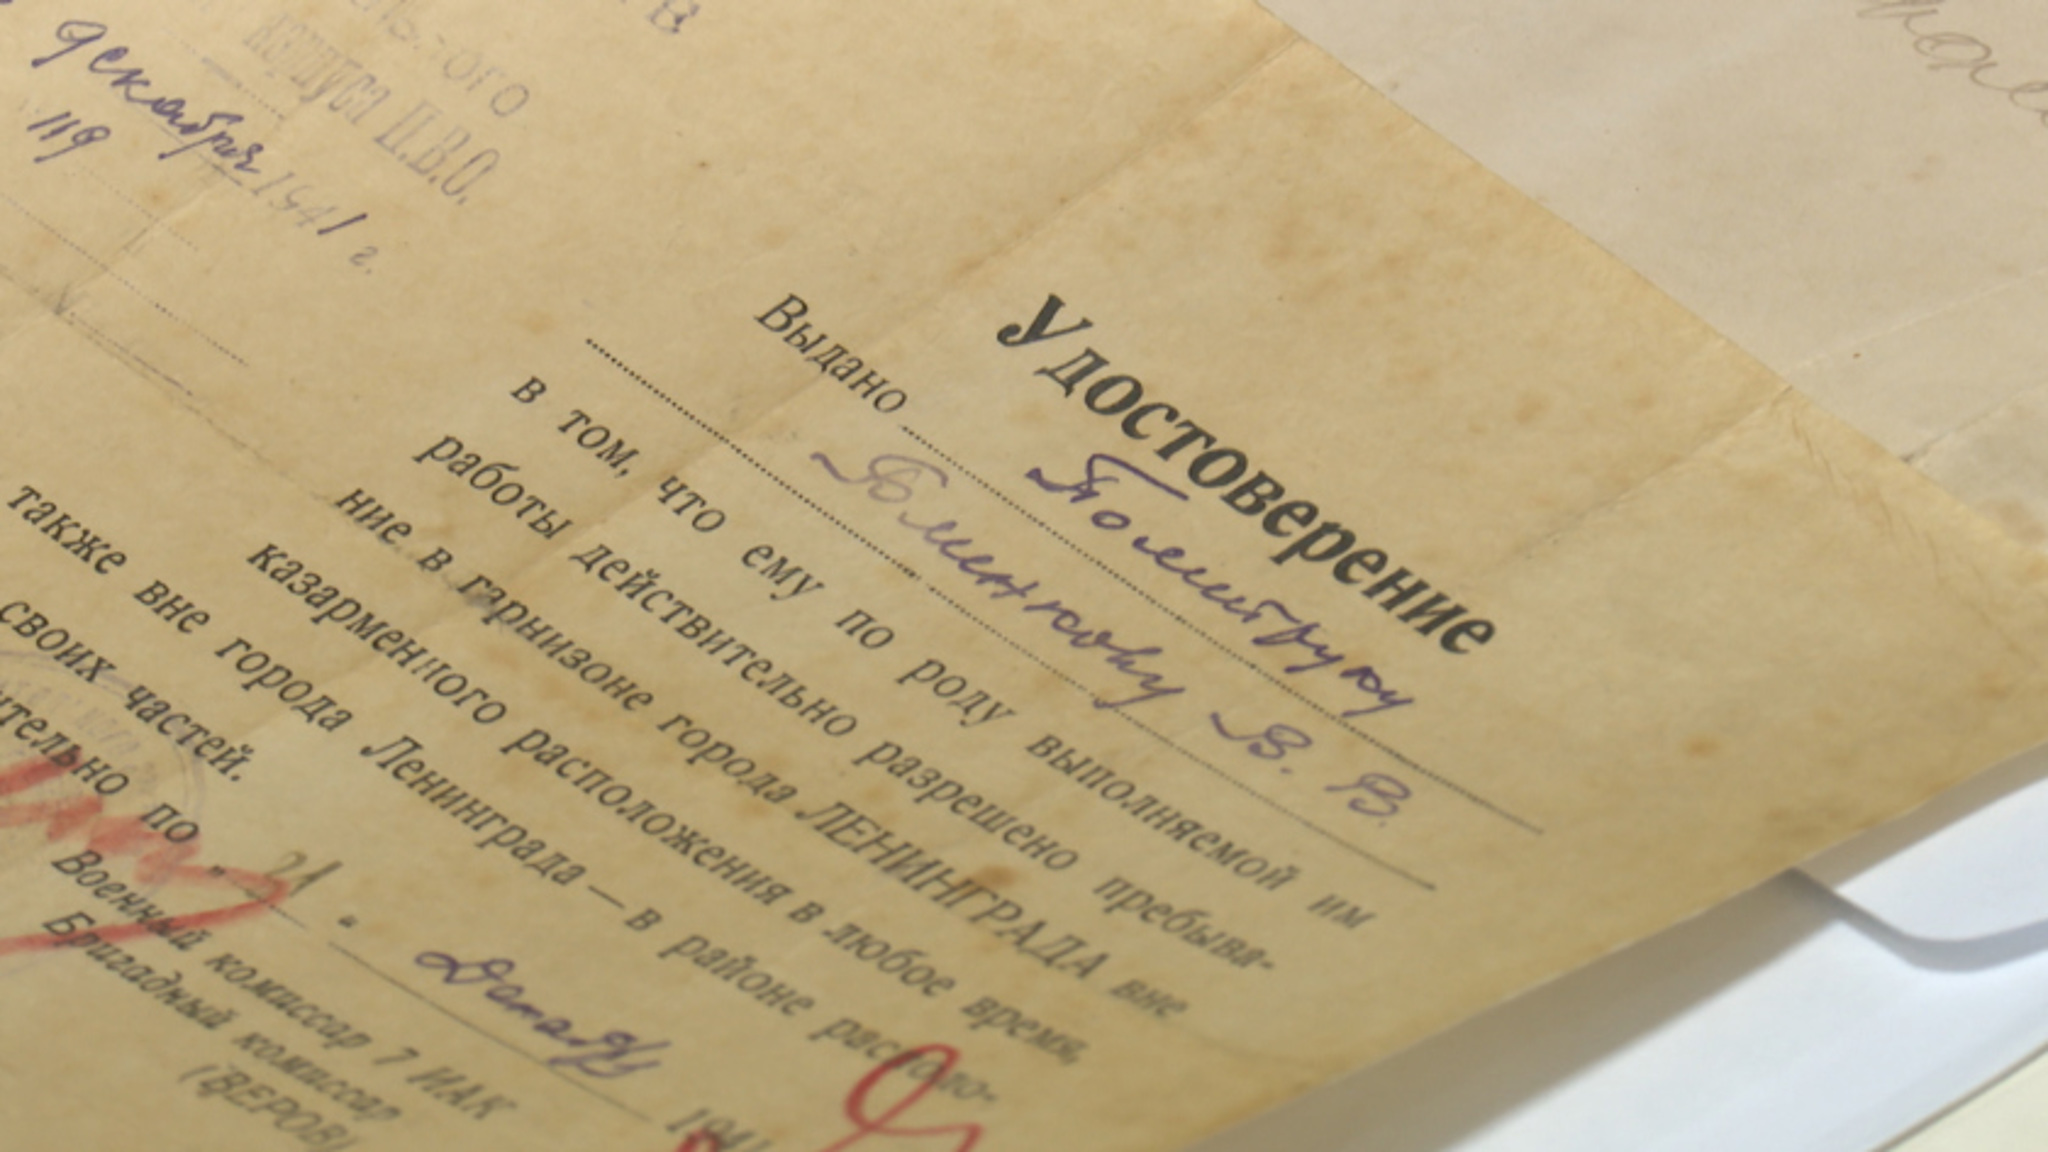 корпуса П.В.О.
декабря 1941 г.
119
Удостоверение
Выдано Политруку
В. В.
в том, что ему по роду выполняемой им
работы действительно разрешено пребыва-
ние в гарнизоне города ЛЕНИНГРАДА вне
казарменного расположения в любое время,
также вне города Ленинграда — в районе располо-
своих частей.
ительно по „ 21 " 1941
Военный комиссар 7 ИАК
Бригадный комиссар